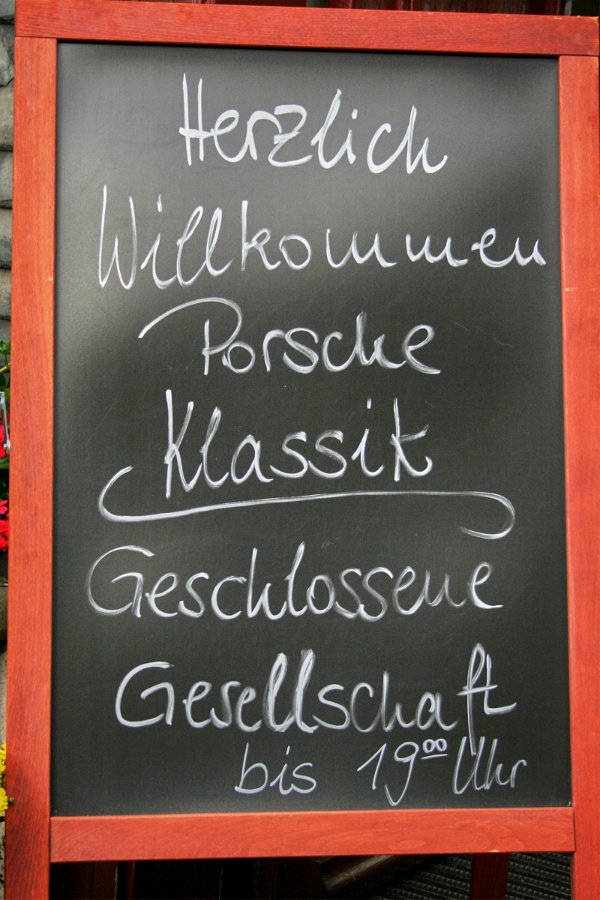 Herzlich
Willkommen
Porsche
Klassik
Geschlossene
Gesellschaft
bis 19⁰⁰ Uhr